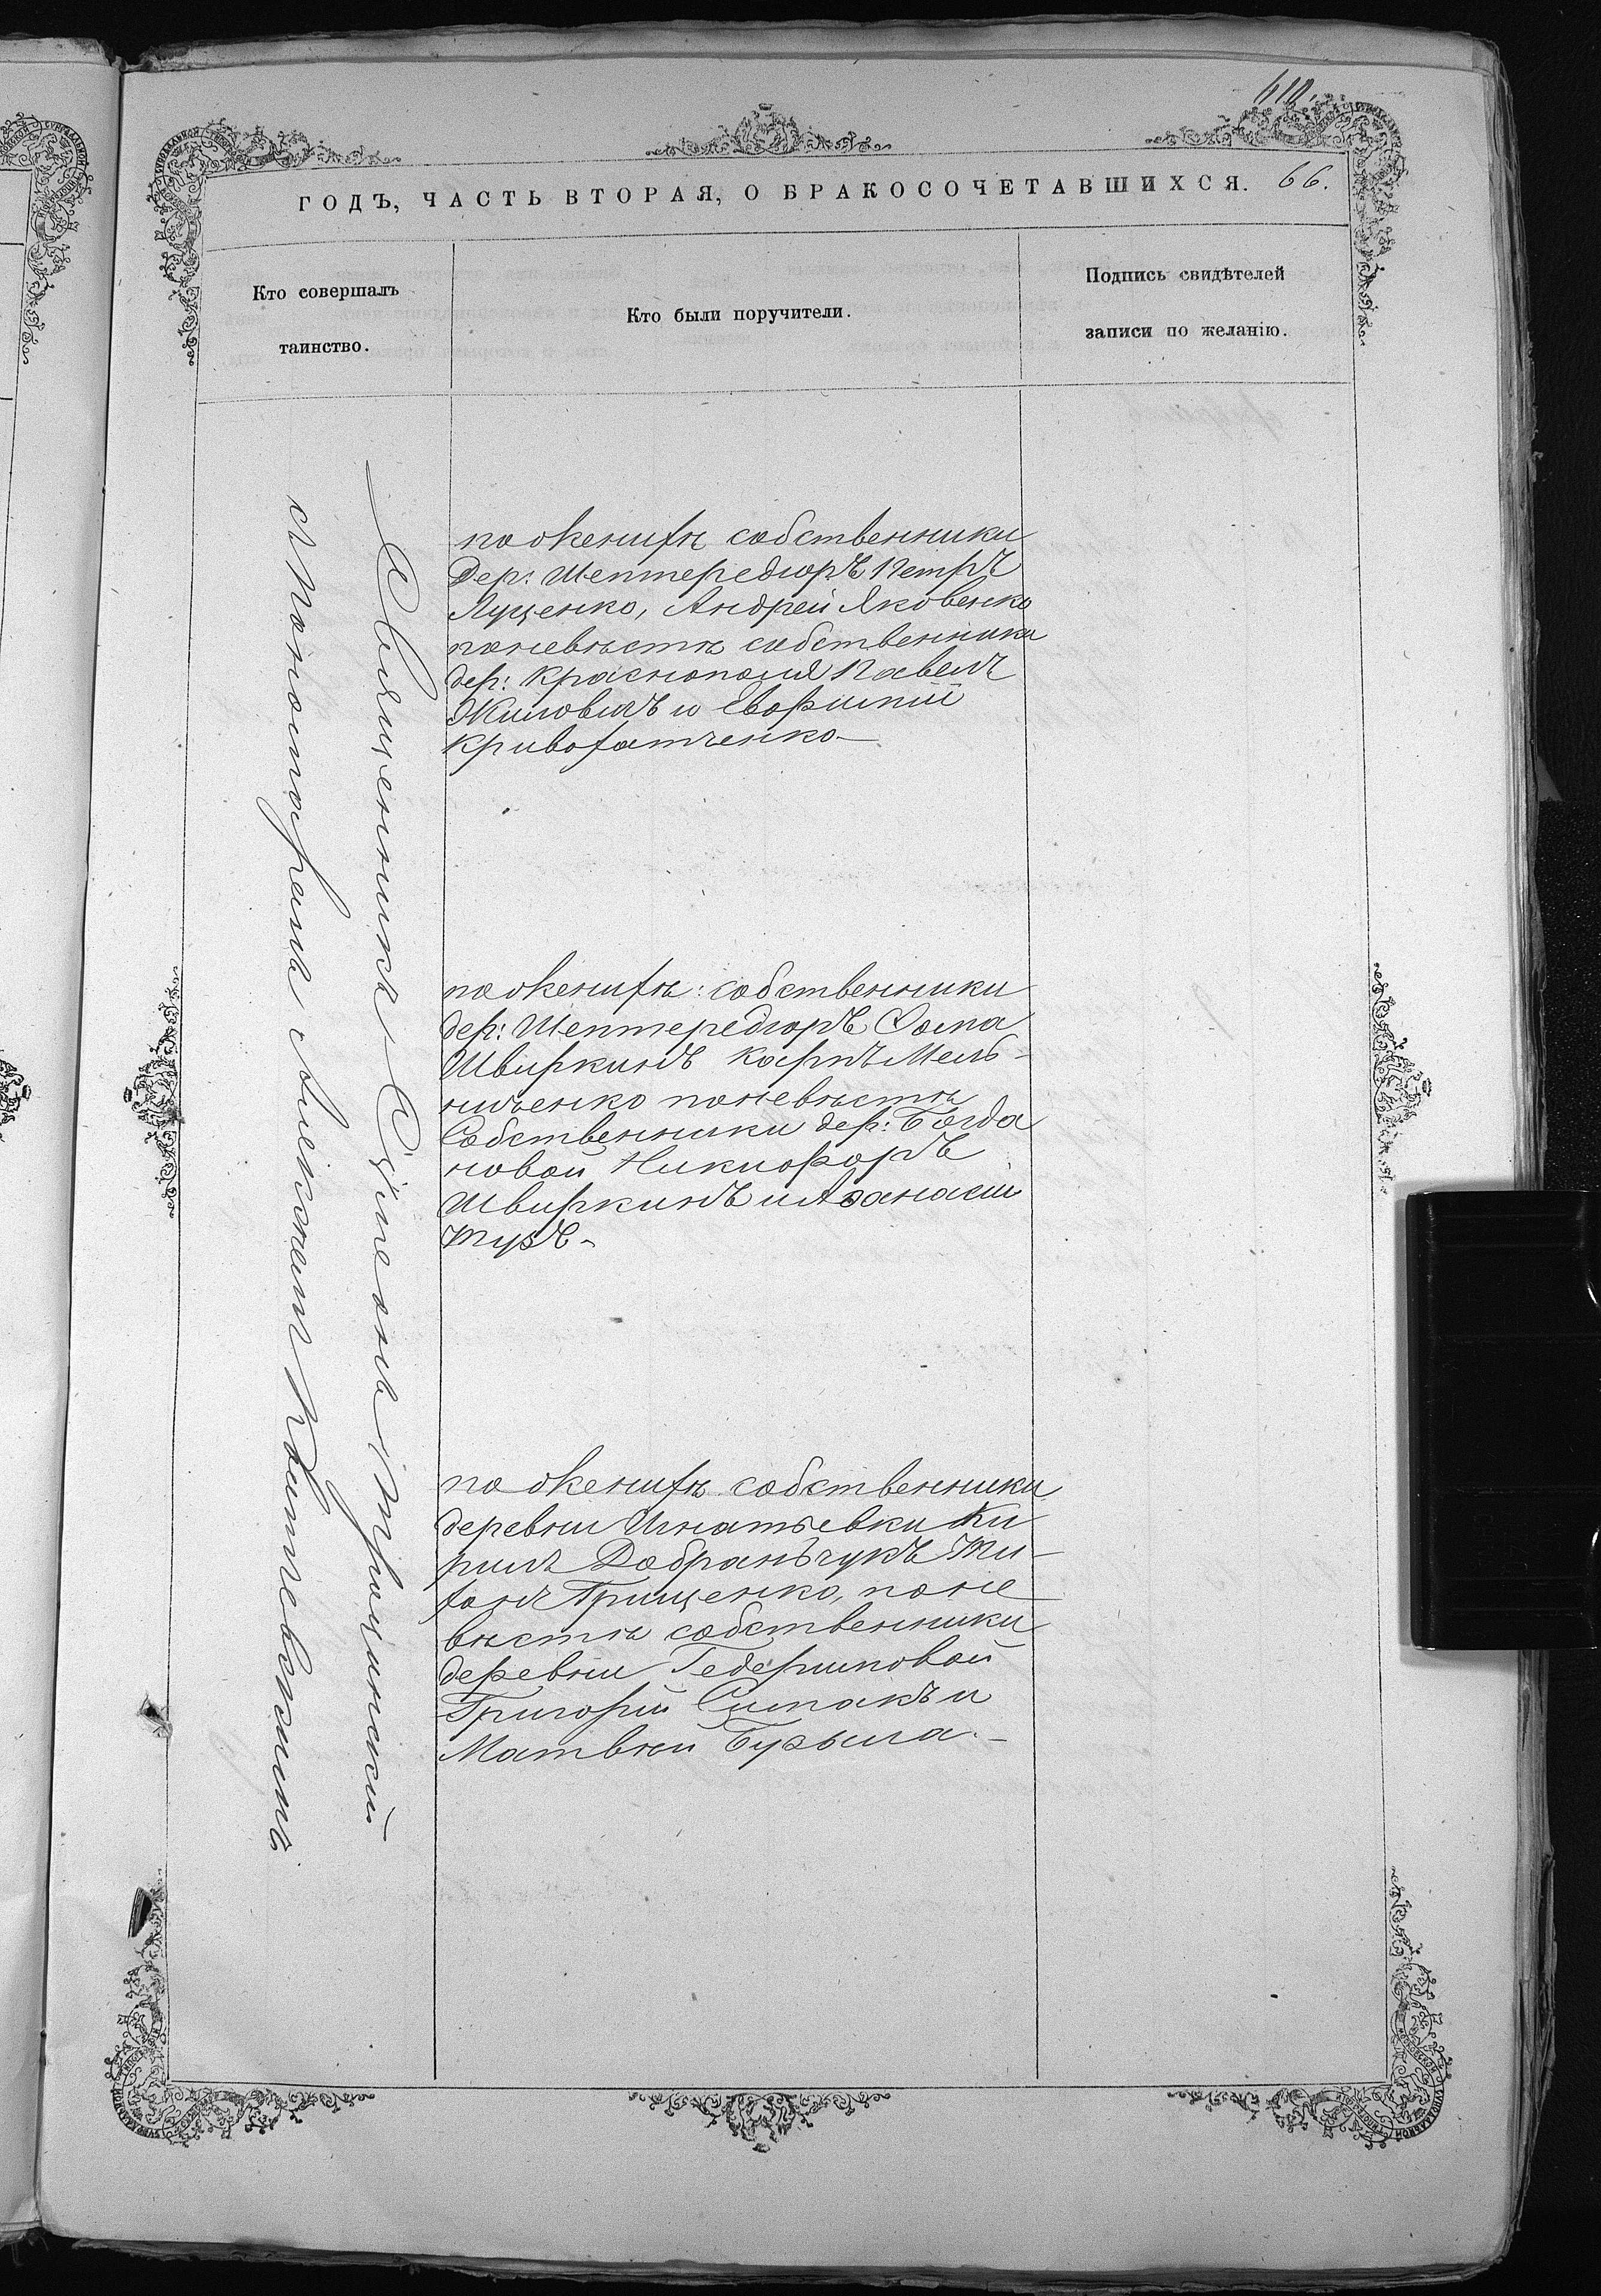 610.
ГОДЪ, ЧАСТЬ ВТОРАЯ, О БРАКОСОЧЕТАВШИХСЯ. 66.
Кто совершалъ
таинство.
Кто были поручители.
Подпись свидѣтелей
записи по желанію.
Священникъ Сѵмеонъ
съ Пономаремъ Алексѣем
по женихѣ собственники
Дер: Шептередюръ Петръ
Луценко, Андрей Яковенко
поневѣстѣ собственники
дер: Краснополя Павелъ
Жиловичъ и Евфимій
Кривохатченко
по женихѣ: собственники
дер: Шептередюръ Ѳома
Швиркинъ Карпъ Мель-
ниченко поневѣстѣ
Собственники дер: Богда
новой Никифоръ
Швиркинъ и Аѳанасій
Тузъ
по женихѣ собственники
деревни Игнатьевки Ки
рилъ Добранчукъ Ти-
хонъ Грищенко, поне
вѣстѣ собственники
деревни Гедеримовой
Григорій Симакъ и
Матвѣй Бузыла.